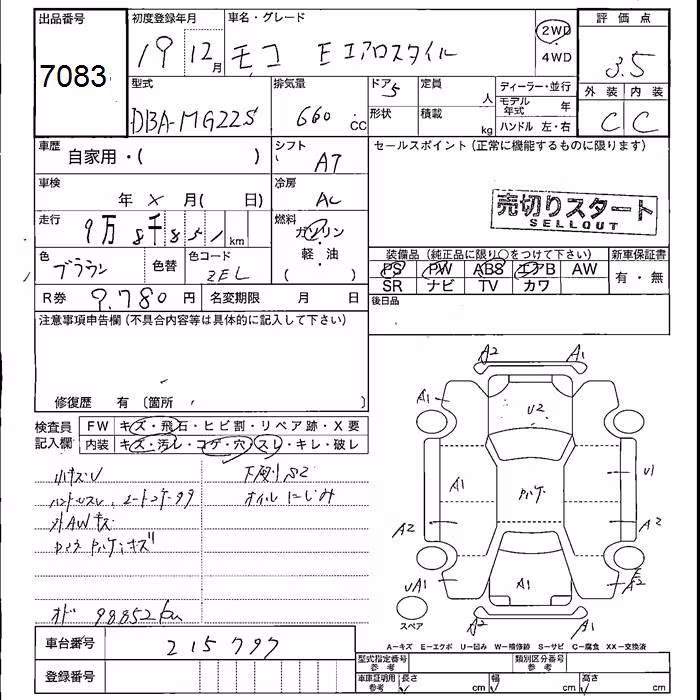 出品番号 初度登録年月 車名・グレード 評価点
7083 19年 12月 モコ Eエアロスタイル 2WD・4WD 3.5
型式 排気量 ドア 5 定員 人 ディーラー・並行 外装 内装
DBA-MG22S 660 CC 形状 積載 kg モデル年式 年 C C
ハンドル 左・右
車歴 自家用・( ) シフト AT セールスポイント(正常に機能するものに限ります)
車検 年 X 月( 日) 冷房 AC
売切りスタート
SELLOUT
走行 9万 8千 8 5 1 km 燃料 ガソリン・軽・油 ( )
色 ブラウン 色替 色コード ZEL
装備品(純正品に限り○をつけて下さい) 新車保証書
PS PW ABS エアB AW 有・無
SR ナビ TV カワ
R券 9.780 円 名変期限 月 日 後日品
注意事項申告欄(不具合内容等は具体的に記入して下さい)
修復歴 有(箇所 )
検査員記入欄 FW キズ・飛石・ヒビ割・リペア跡・X要
内装 キズ・汚レ・コゲ・穴・スレ・キレ・破レ
小キズU 下廻りS2
ハンドルスレ オイルにじみ
外AWキズ
オド 98852km
A2 A1
A1 U2
A1 U1
A2 A2
UA1 A1
A2 A1
スペア
A-キズ E-エクボ U-凹み W-補修跡 S-サビ C-腐食 XX-交換済
車台番号 215797
型式指定番号 参考 類別区分番号 参考
登録番号
車庫証明用 参考 長さ cm 幅 cm 高さ cm